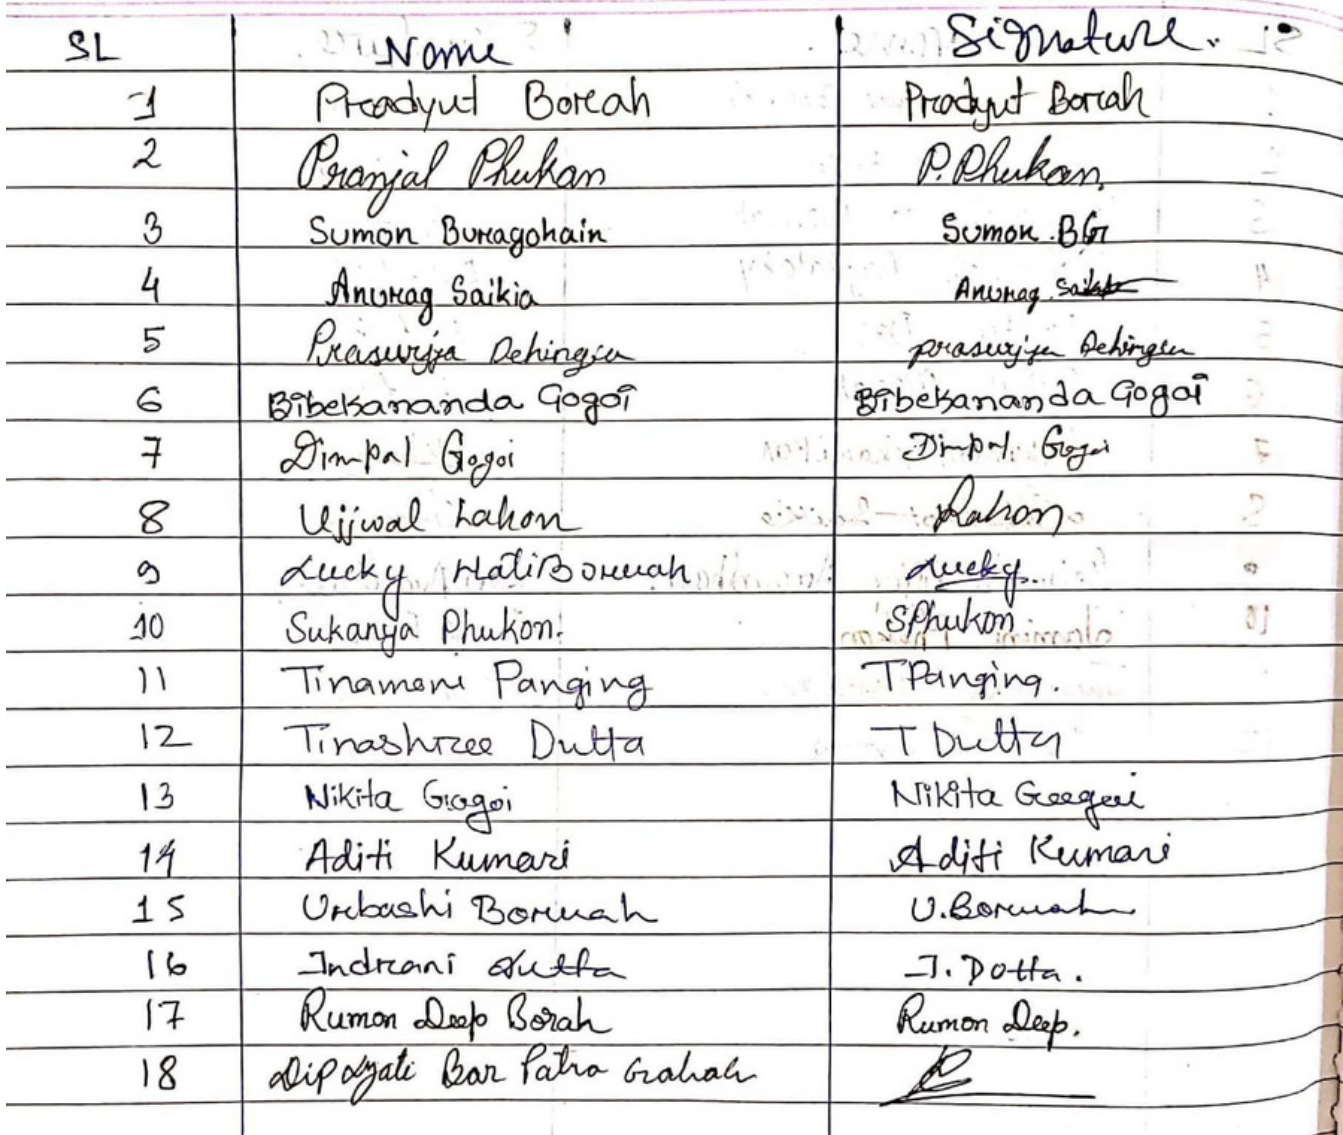 SL Name Signature.
1 Pradyut Borah Pradyut Borah
2 Pranjal Phukan P. Phukan,
3 Sumon Buragohain Sumon .BG
4 Anurag Saikia Anurag Saikia
5 Prasurjya Dehingia prasurjya Dehingia
6 Bibekananda Gogoi Bibekananda Gogoi
7 Dimpal Gogoi Dimpal Gogoi
8 Ujjwal Lahon Lahon
9 Lucky HatiBoruah Lucky
10 Sukanya Phukon. SPhukon
11 Tinamoni Panging TPanging.
12 Tinashree Dutta T Dutta
13 Nikita Gogoi Nikita Gogoi
14 Aditi Kumari Aditi Kumari
15 Urbashi Boruah U.Boruah
16 Indrani Dutta I. Dutta.
17 Rumon Deep Borah Rumon Deep.
18 Dip Jyoti Bar Patra Gohain